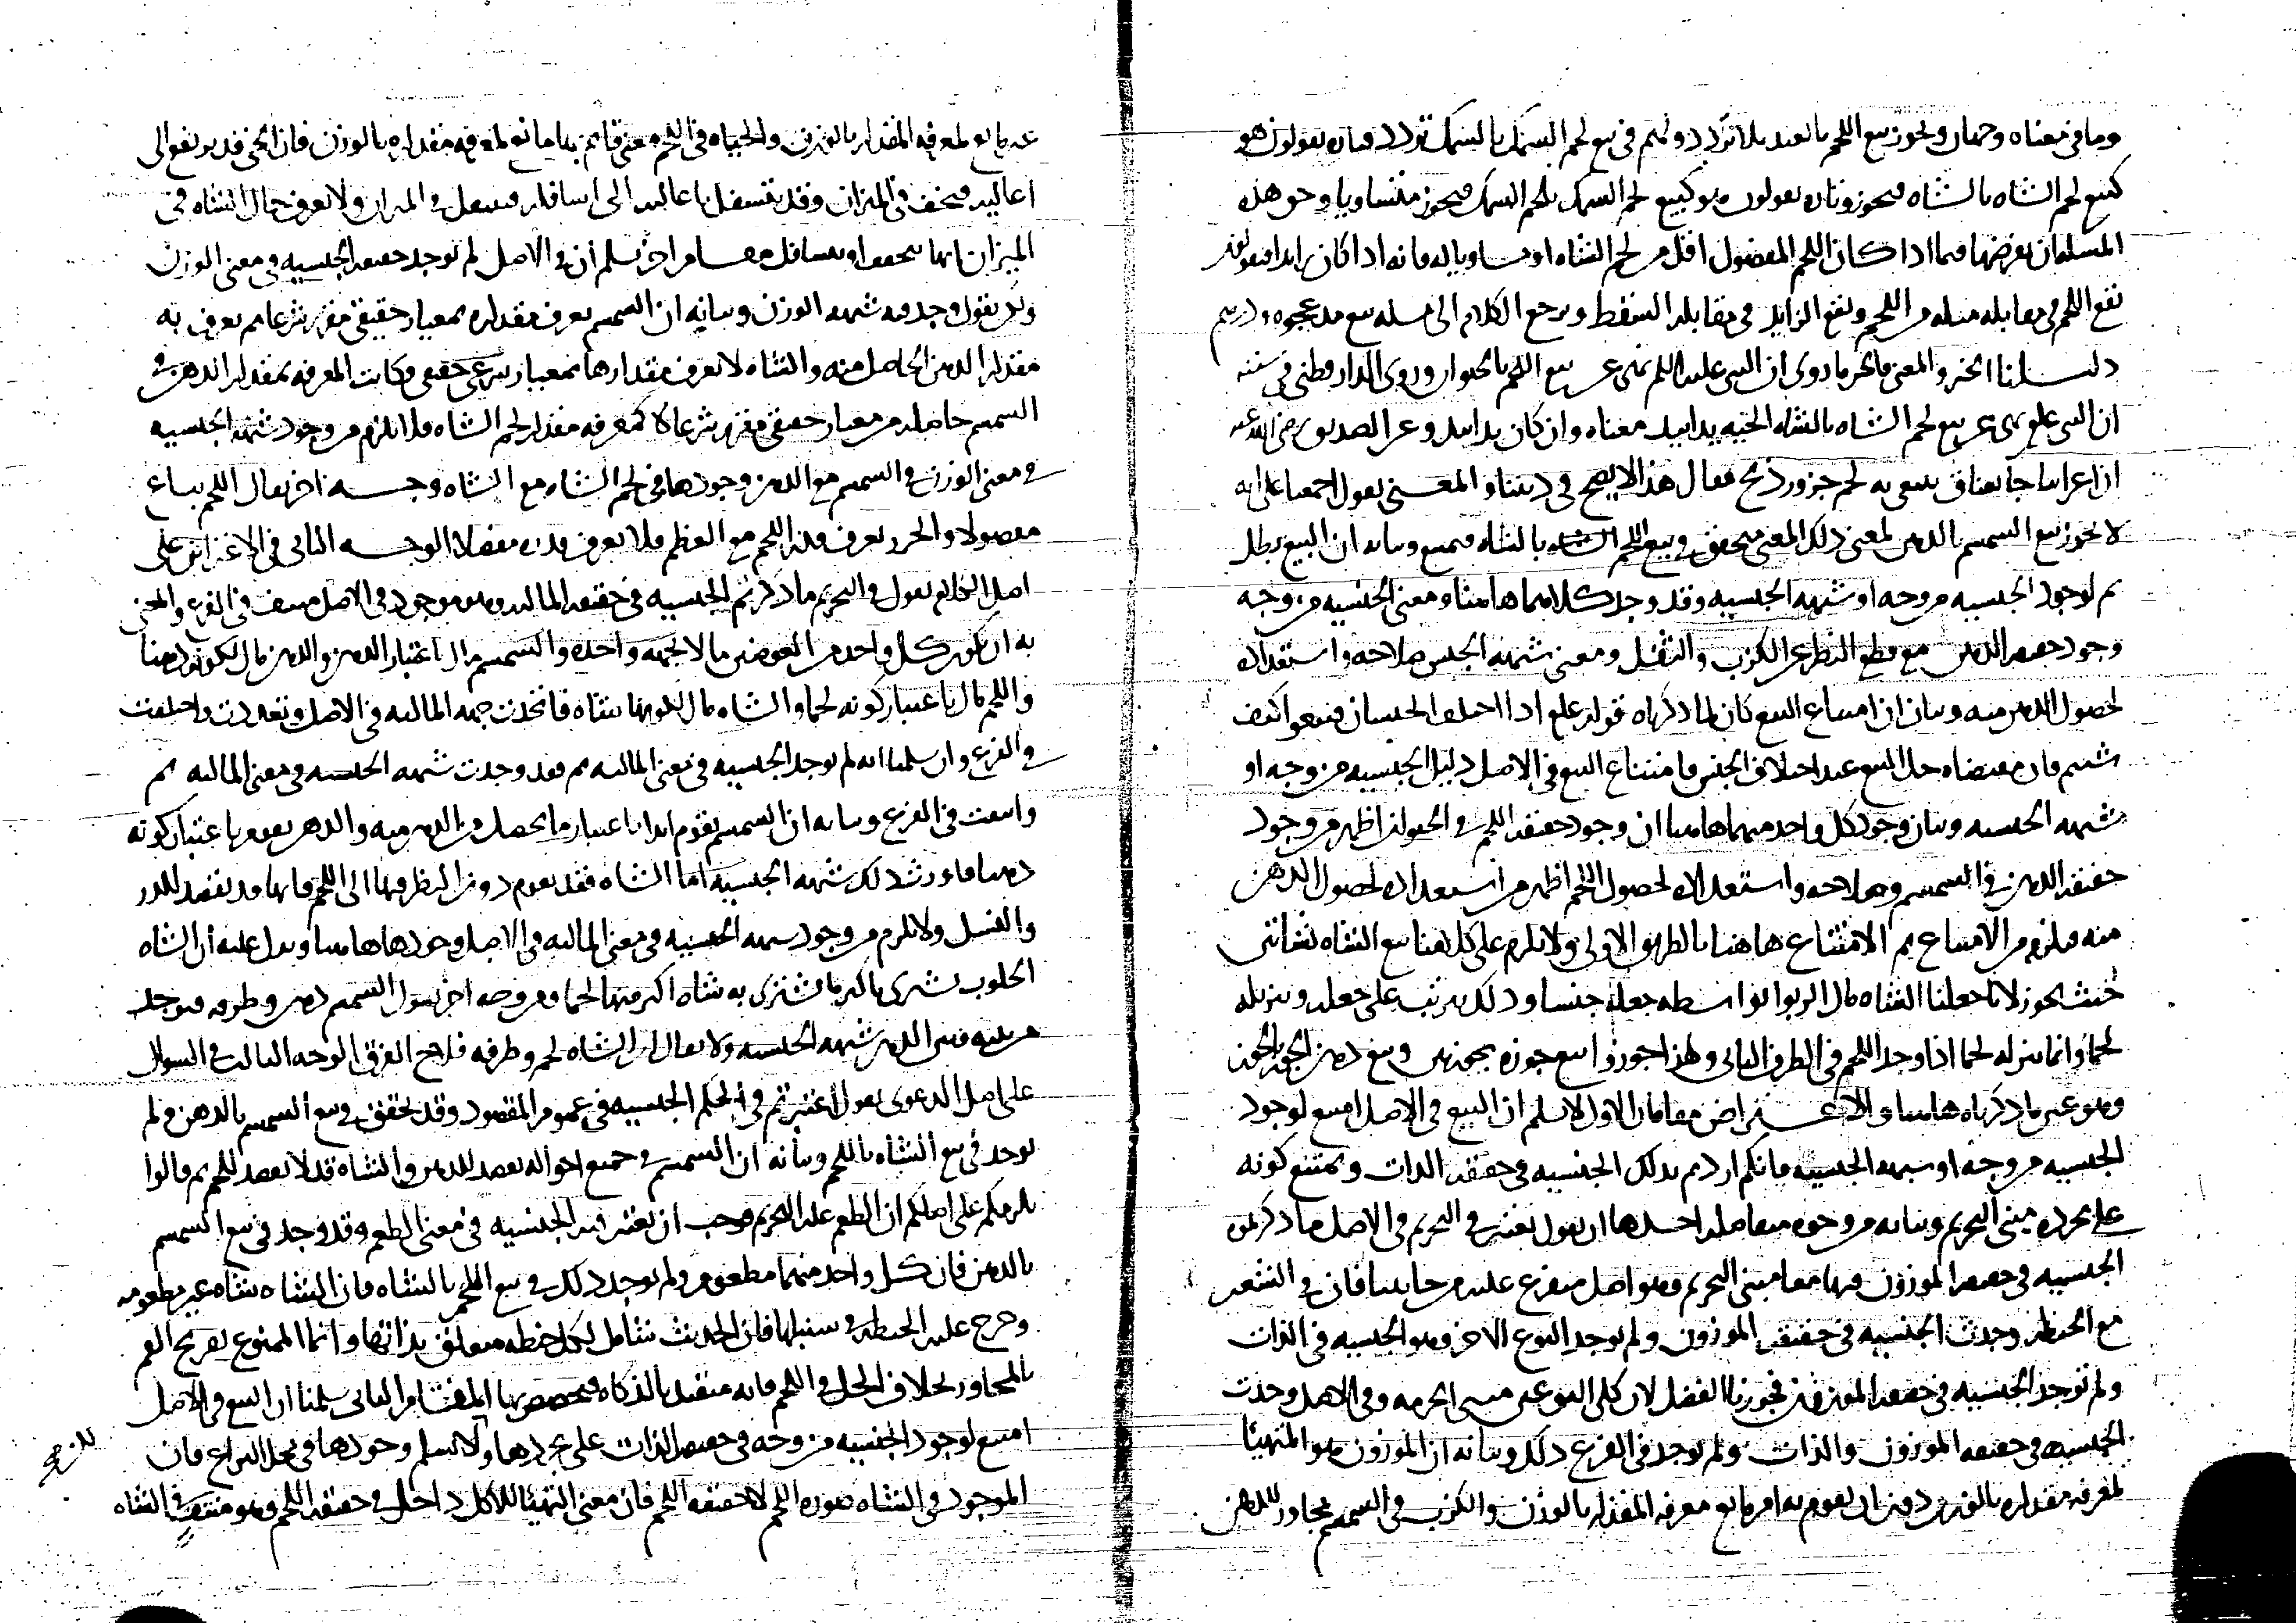 وما في معناه وجهان ويجوز بيع اللحم بالعبد بلا تردد ولهم في بيع لحم السمك بالسمك تردد فتارة يقولون هو
كبيع لحم الشاة بالشاة فيجوز وتارة يقولون هو كبيع لحم السمك بلحم السمك فيجوز متساويا وحق هذه
المسلة ان نعرضها فيما اذا كان اللحم المفضول اقل من لحم الشاة او مساويا له فانه اذا كان زايدا فيقولون
يقع اللحم في مقابلة مثله من اللحم ويقع الزايد في مقابلة السقط ويرجع الكلام الى مسلة بيع مد عجوة ودرهم
دليلنا الخبر والمعنى فالخبر ما روى ان النبي عليه السلم نهى عن بيع اللحم بالحيوان وروى الدارقطني في سننه
ان النبي علم نهى عن بيع لحم الشاة بالشاة الحية يدا بيد معناه وان كان يدا بيد وعن الصديق رضي الله عنه
ان اعرابيا جا بعناق يبتغي به لحم جزور ذبح فقال هذا لا يصح في ديننا والمعنى نقول اجمعنا على انه
لا يجوز بيع السمسم بالدهن لمعنى ذلك المعنى متحقق في بيع اللحم بالشاة فيمتنع وبيانه ان البيع بطل
ثم لوجود الجنسية من وجه او شبهة الجنسية وقد وجد كلاهما هاهنا ومعنى الجنسية من وجه
وجود حقيقة الدهن مع قطع النظر عن الكزب والثفل ومعنى شبهة الجنس صلاحه واستعداده
لحصول الدهن منه وبيان ان امتناع البيع كان لما ذكرناه قوله علم اذا اختلف الجنسان فبيعوا كيف
شيتم فان مقتضاه حل البيع عند اختلاف الجنس فامتناع البيع في الاصل دليل الجنسية من وجه او
شبهة الجنسية وبيان وجود كل واحد منهما هاهنا ان وجود حقيقة اللحم في الحيوان اظهر من وجود
حقيقة الدهن في السمسم وصلاحه واستعداده لحصول اللحم اظهر من استعداده لحصول الدهن
منه فيلزم من الامتناع ثم الامتناع هاهنا بالطريق الاولى ولا يلزم على كلامنا بيع الشاة بشاتين
حيث يجوز لانا جعلنا الشاة مال الربوا بواسطة جعله جنسا وذلك يترتب على جعله وتنزيله
لحما وانما ينزله لحما اذا وجد اللحم في الطرف الثاني ولهذا جوزوا بيع جوزة بجوزتين وبيع دهن الجوز بالجوز
وهو عين ما ذكرناه هاهنا والاعتراض مقامان الاول لا نسلم ان البيع في الاصل امتنع لوجود
الجنسية من وجه او شبهة الجنسية فانكم اردتم بذلك الجنسية في حقيقة الذات ويمتنع كونه
على مجرده مبنى التحريم وبيانه من وجوه متفاصلة احدها ان نقول يعتبر في التحريم في الاصل ما ذكر من
الجنسية في حقيقة الموزون فيهما معا مبنى التحريم وهو اصل متفرع عليه من جانبنا فان في الشعير
مع الحنطة وجدت الجنسية في حقيقة الموزون ولم يوجد النوع الاخر وهو الجنسية في الذات
ولم توجد الجنسية في حقيقة الموزون فجوزنا الفضل لان كلي النوعين مبنى الحرمة وفي الاصل وجدت
الجنسية في حقيقة الموزون والذات ولم توجد في الفرع ذلك وبيانه ان الموزون هو المتهيئا
لمعرفة مقداره بالوزن دون ان يقوم به امر مانع معرفة المقدار بالوزن والكزب في السمسم مجاور للدهن
غير مانع لمعرفة المقدار بالوزن والحياة في اللحم معنى قايم بها مانع لمعرفة مقداره بالوزن فان الحي قد يرتفع الى
اعاليه فيخف في الميزان وقد يتسفل باعاليه الى اسافله فيثقل في الميزان ولا يعرف حال الشاة في
الميزان انها تخففت او تثاقلت مقام اخر نسلم ان في الاصل لم توجد حقيقة الجنسية في معنى الوزن
ولكن نقول وجد فيه شبهة الوزن وبيانه ان السمسم يعرف مقداره بمعيار حقيقي مقرر شرعا ثم يعرف به
مقدار الدهن الحاصل منه والشاة لا تعرف مقدارها بمعيار شرعي حقيقي وكانت المعرفة بمقدار الدهن في
السمسم حاصلة من معيار حقيقي مقرر شرعا لا كمعرفة مقدار لحم الشاة فلا يلزم من وجود شبهة الجنسية
في معنى الوزن في السمسم مع الدهن وجودها في لحم الشاة مع الشاة وجه اخر يقال اللحم يباع
مفصولا والجزار يعرف قدر اللحم مع العظم فلا يعرف قدره مفصلا الوجه الثاني في الاعتراض على
اصل الكلام نقول في التحريم ما ذكرتم الجنسية في حقيقة المالية وهو موجود في الاصل منتف في الفرع والمعنى
به ان يكون كل واحد من العوضين مالا بجهة واحدة والسمسم مال باعتبار الدهن والدهن مال لكونه دهنا
واللحم مال باعتبار كونه لحما والشاة مال لكونها شاة فاتحدت جهة المالية في الاصل وتعددت واختلفت
في الفرع وان سلمنا انه لم توجد الجنسية في معنى المالية ثم فقد وجدت شبهة الجنسية في معنى المالية ثم
وانتفت في الفرع وبيانه ان السمسم يقوم ابدا باعتبار ما يحصل من الدهن منه والدهن يقوم باعتبار كونه
دهنا فاورث ذلك شبهة الجنسية اما الشاة فقد تقوم دون النظر فيها الى اللحم فانها قد تقصد للدر
والنسل ولا يلزم من وجود شبهة الجنسية في معنى المالية في الاصل وجودها هاهنا ويدل عليه ان الشاة
الحلوب تشترى باكثر ما تشترى به شاة اكبر منها لحما ومن وجه اخر نقول السمسم دهن وظرفه فيوجد
من بينه وبين الدهن شبهة الجنسية ولا يقال ان الشاة لحم وظرفه فلاح الفرق الوجه الثالث في السوال
على اصل الدعوى نقول اعتبرتم في الحكم الجنسية في عموم المقصود وقد تحقق في بيع السمسم بالدهن ولم
توجد في بيع الشاة باللحم وبيانه ان السمسم في جميع احواله يقصد للدهن والشاة قد لا تقصد للحم ثم قالوا
يلزمكم على اصلكم ان الطعم علة التحريم فوجب ان تعتبر فيه الجنسية في معنى الطعم وقد وجد في بيع السمسم
بالدهن فان كل واحد منهما مطعوم ولم يوجد ذلك في بيع اللحم بالشاة فان الشاة شاة غير مطعومة
وخرج عليه الحنطة في سنبلها فان الحديث شامل لكل حنطة متعلق بذاتها وانما الممنوع تفريح الفم
بالمجاور بخلاف الحل في اللحم فانه متقيد بالذكاة فيختص بها المقام الثاني سلمنا ان البيع في الاصل
امتنع لوجود الجنسية من وجه في حقيقة الذات على تجردها ولا نسلم وجودها في محل النزاع فان
الموجود في الشاة صورة اللحم لا حقيقة اللحم فان معنى التهيئا للاكل داخل في حقيقة اللحم وهو منتف في الشاة